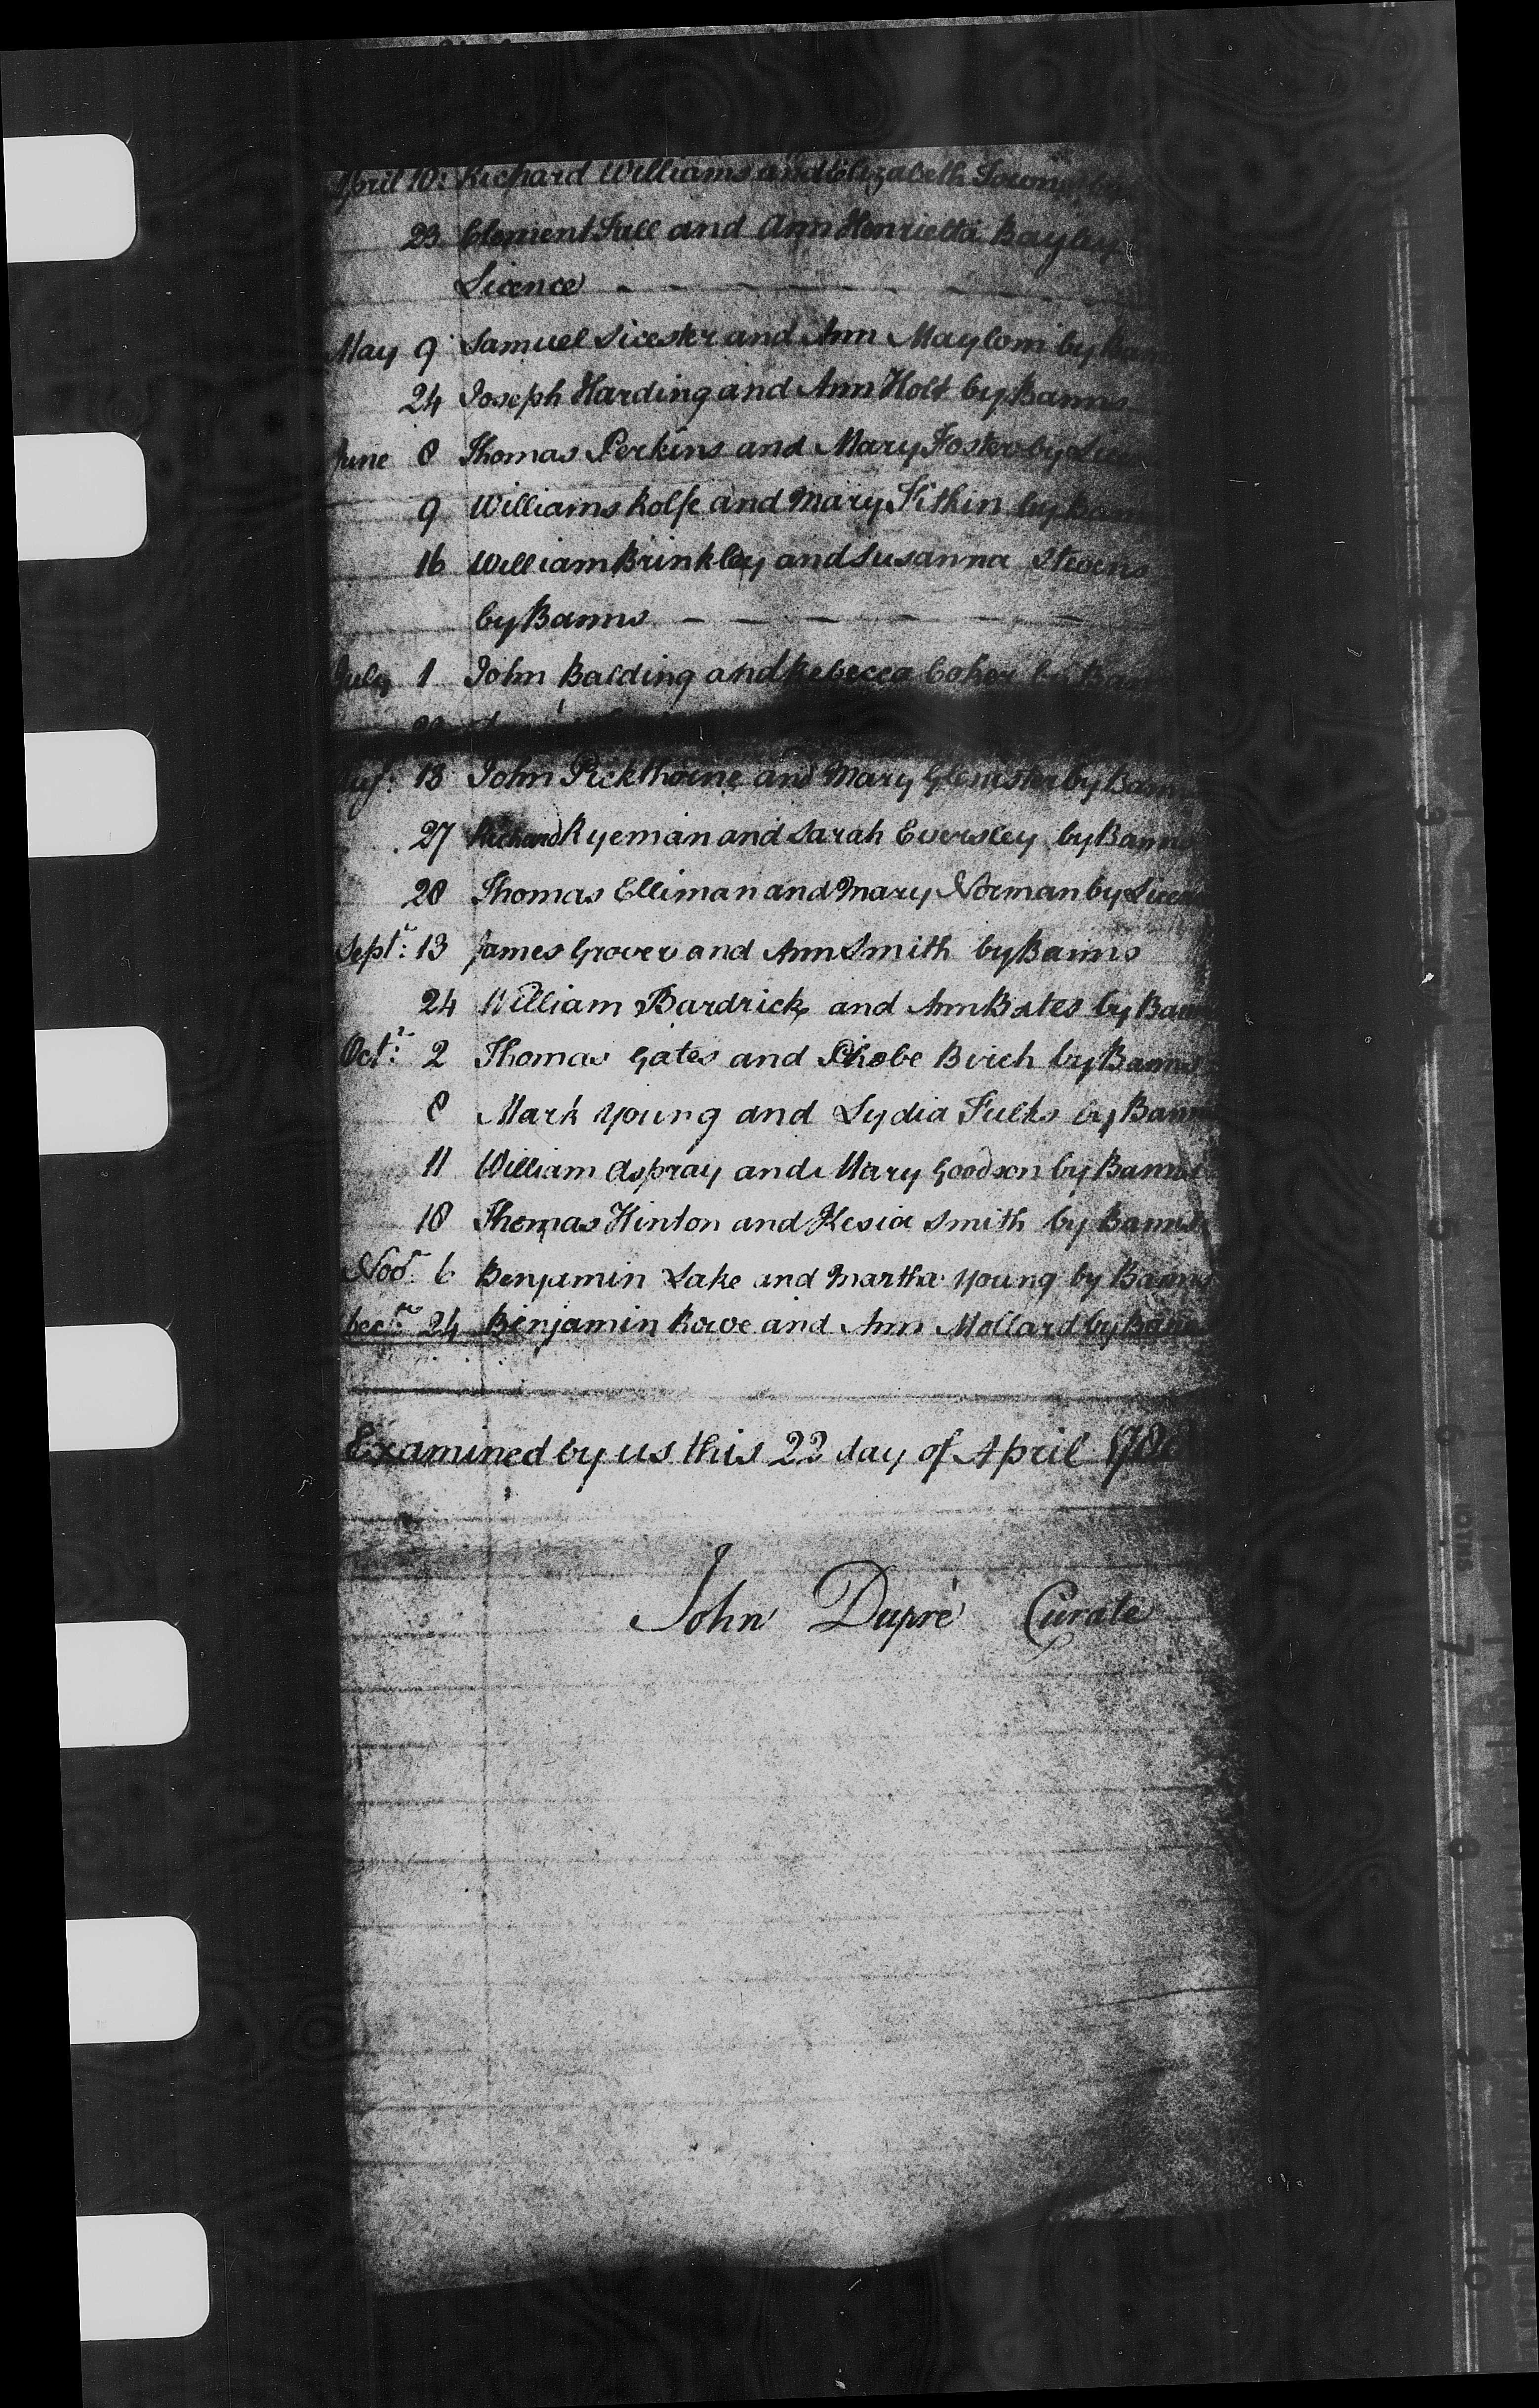 April 10: Richard Williams and Elizabeth
23 Clement Fall and Ann Henrietta Bayley
Licence
May 9 Samuel Sicester and Ann Maylom by Banns
24 Joseph Harding and Ann Holt by Banns
June 8 Thomas Perkins and Mary Foster by
9 Williams Rolfe and Mary Fitkin by
16 William Brinkley and Susanna Stevens
by Banns
July 1 John Balding and Rebecca Coker by
Augt: 13 John Pickthorne and Mary Glenister by Banns
27 Richard Ryeman and Sarah Eversley by Banns
28 Thomas Elliman and Mary Norman by Licence
Septr: 13 James Grover and Ann Smith by Banns
24 William Bardrick and Ann Bates by Banns
Octr: 2 Thomas Gates and Phobe Birch by Banns
8 Mark Young and Lydia Fulks by Banns
11 William Aspray and Mary Goodson by Banns
18 Thomas Hinton and Kesia Smith by Banns
Novr 6 Benjamin Lake and Martha Young by Banns
Decr: 24 Benjamin Rowe and Ann Mollard by Banns
Examined by us this 22 day of April
John Dupré Curate